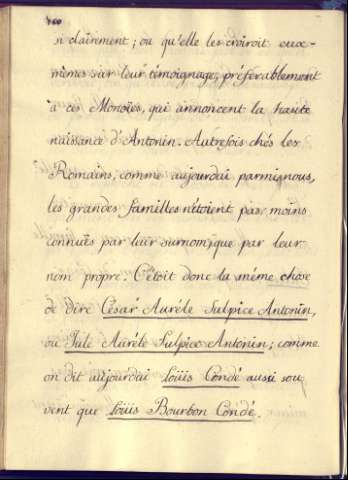 160
si clairement; ou qu'elle les croiroit eux-
mêmes sur leur témoignage, préférablement
à ces Monoïes, qui annoncent la haute
naissance d'Antonin. Autrefois chés les
Romains, comme aujourdui parmi nous,
les grandes familles n'étoient pas moins
connuës par leur surnom, que par leur
nom propre. C'étoit donc la même chose
de dire César Auréle Sulpice Antonin,
ou Jule Auréle Sulpice Antonin; comme
on dit aujourdui Loüis Condé aussi sou
vent que Loüis Bourbon Condé.